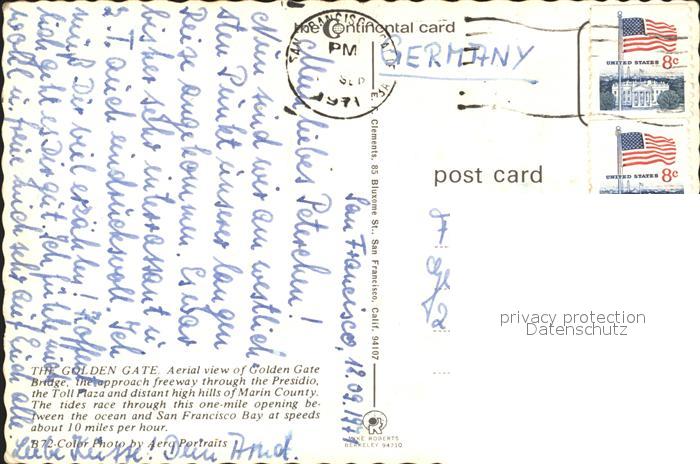 the Continental card
SAN FRANCISCO, CA
PM
SEP
1971
GERMANY
UNITED STATES 8c
UNITED STATES 8c
post card
E. F. Clements, 85 Bluxome St., San Francisco, Calif. 94107
San Francisco, 12.09.1971
Mein liebes Peterchen!
Nun sind wir am westlich
sten Punkt unserer langen
Reise angekommen. Es war
bisher sehr interessant u.
z. T. auch eindrucksvoll. Ich
muß Dir viel erzählen! Hoffent
lich geht es Dir gut. Ich fühle mich
wohl u. freue mich sehr auf Euch alle
Liebe Küsse! Dein
privacy protection
Datenschutz
THE GOLDEN GATE. Aerial view of Golden Gate
Bridge, the approach freeway through the Presidio,
the Toll Plaza and distant high hills of Marin County.
The tides race through this one-mile opening be-
tween the ocean and San Francisco Bay at speeds
about 10 miles per hour.
B72-Color Photo by Aero Portraits
MIKE ROBERTS
BERKELEY 94710